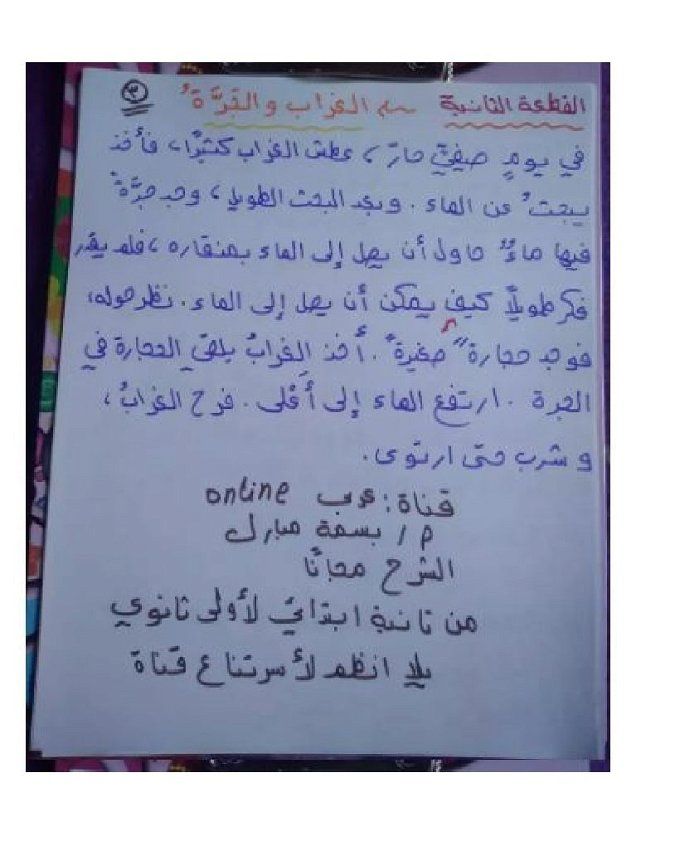 القطعة الثانية سم الغراب والجَرَّةُ ٣
في يومٍ صيفيٍّ حارّ، عطش الغراب كثيرًا، فأخذ
يبحثُ عن الماء. وبعد البحث الطويل، وجد جرَّةً
فيها ماءٌ حاول أن يصل إلى الماء بمنقاره، فلم يقدر
فكر طويلًا كيف يمكن أن يصل إلى الماء. نظر حوله،
فوجد حجارة" صغيرةً. أخذ الغرابُ يلقي الحجارة في
الجرة. ارتفع الماء إلى أعْلى. فرح الغرابُ،
و شرب حتى ارتوى.
قناة: عرب online
م / بسمة مبارك
الشرح مجانًا
من تانية ابتدائي لأولى ثانوي
يلا انظم لأسرتنا ع قناة